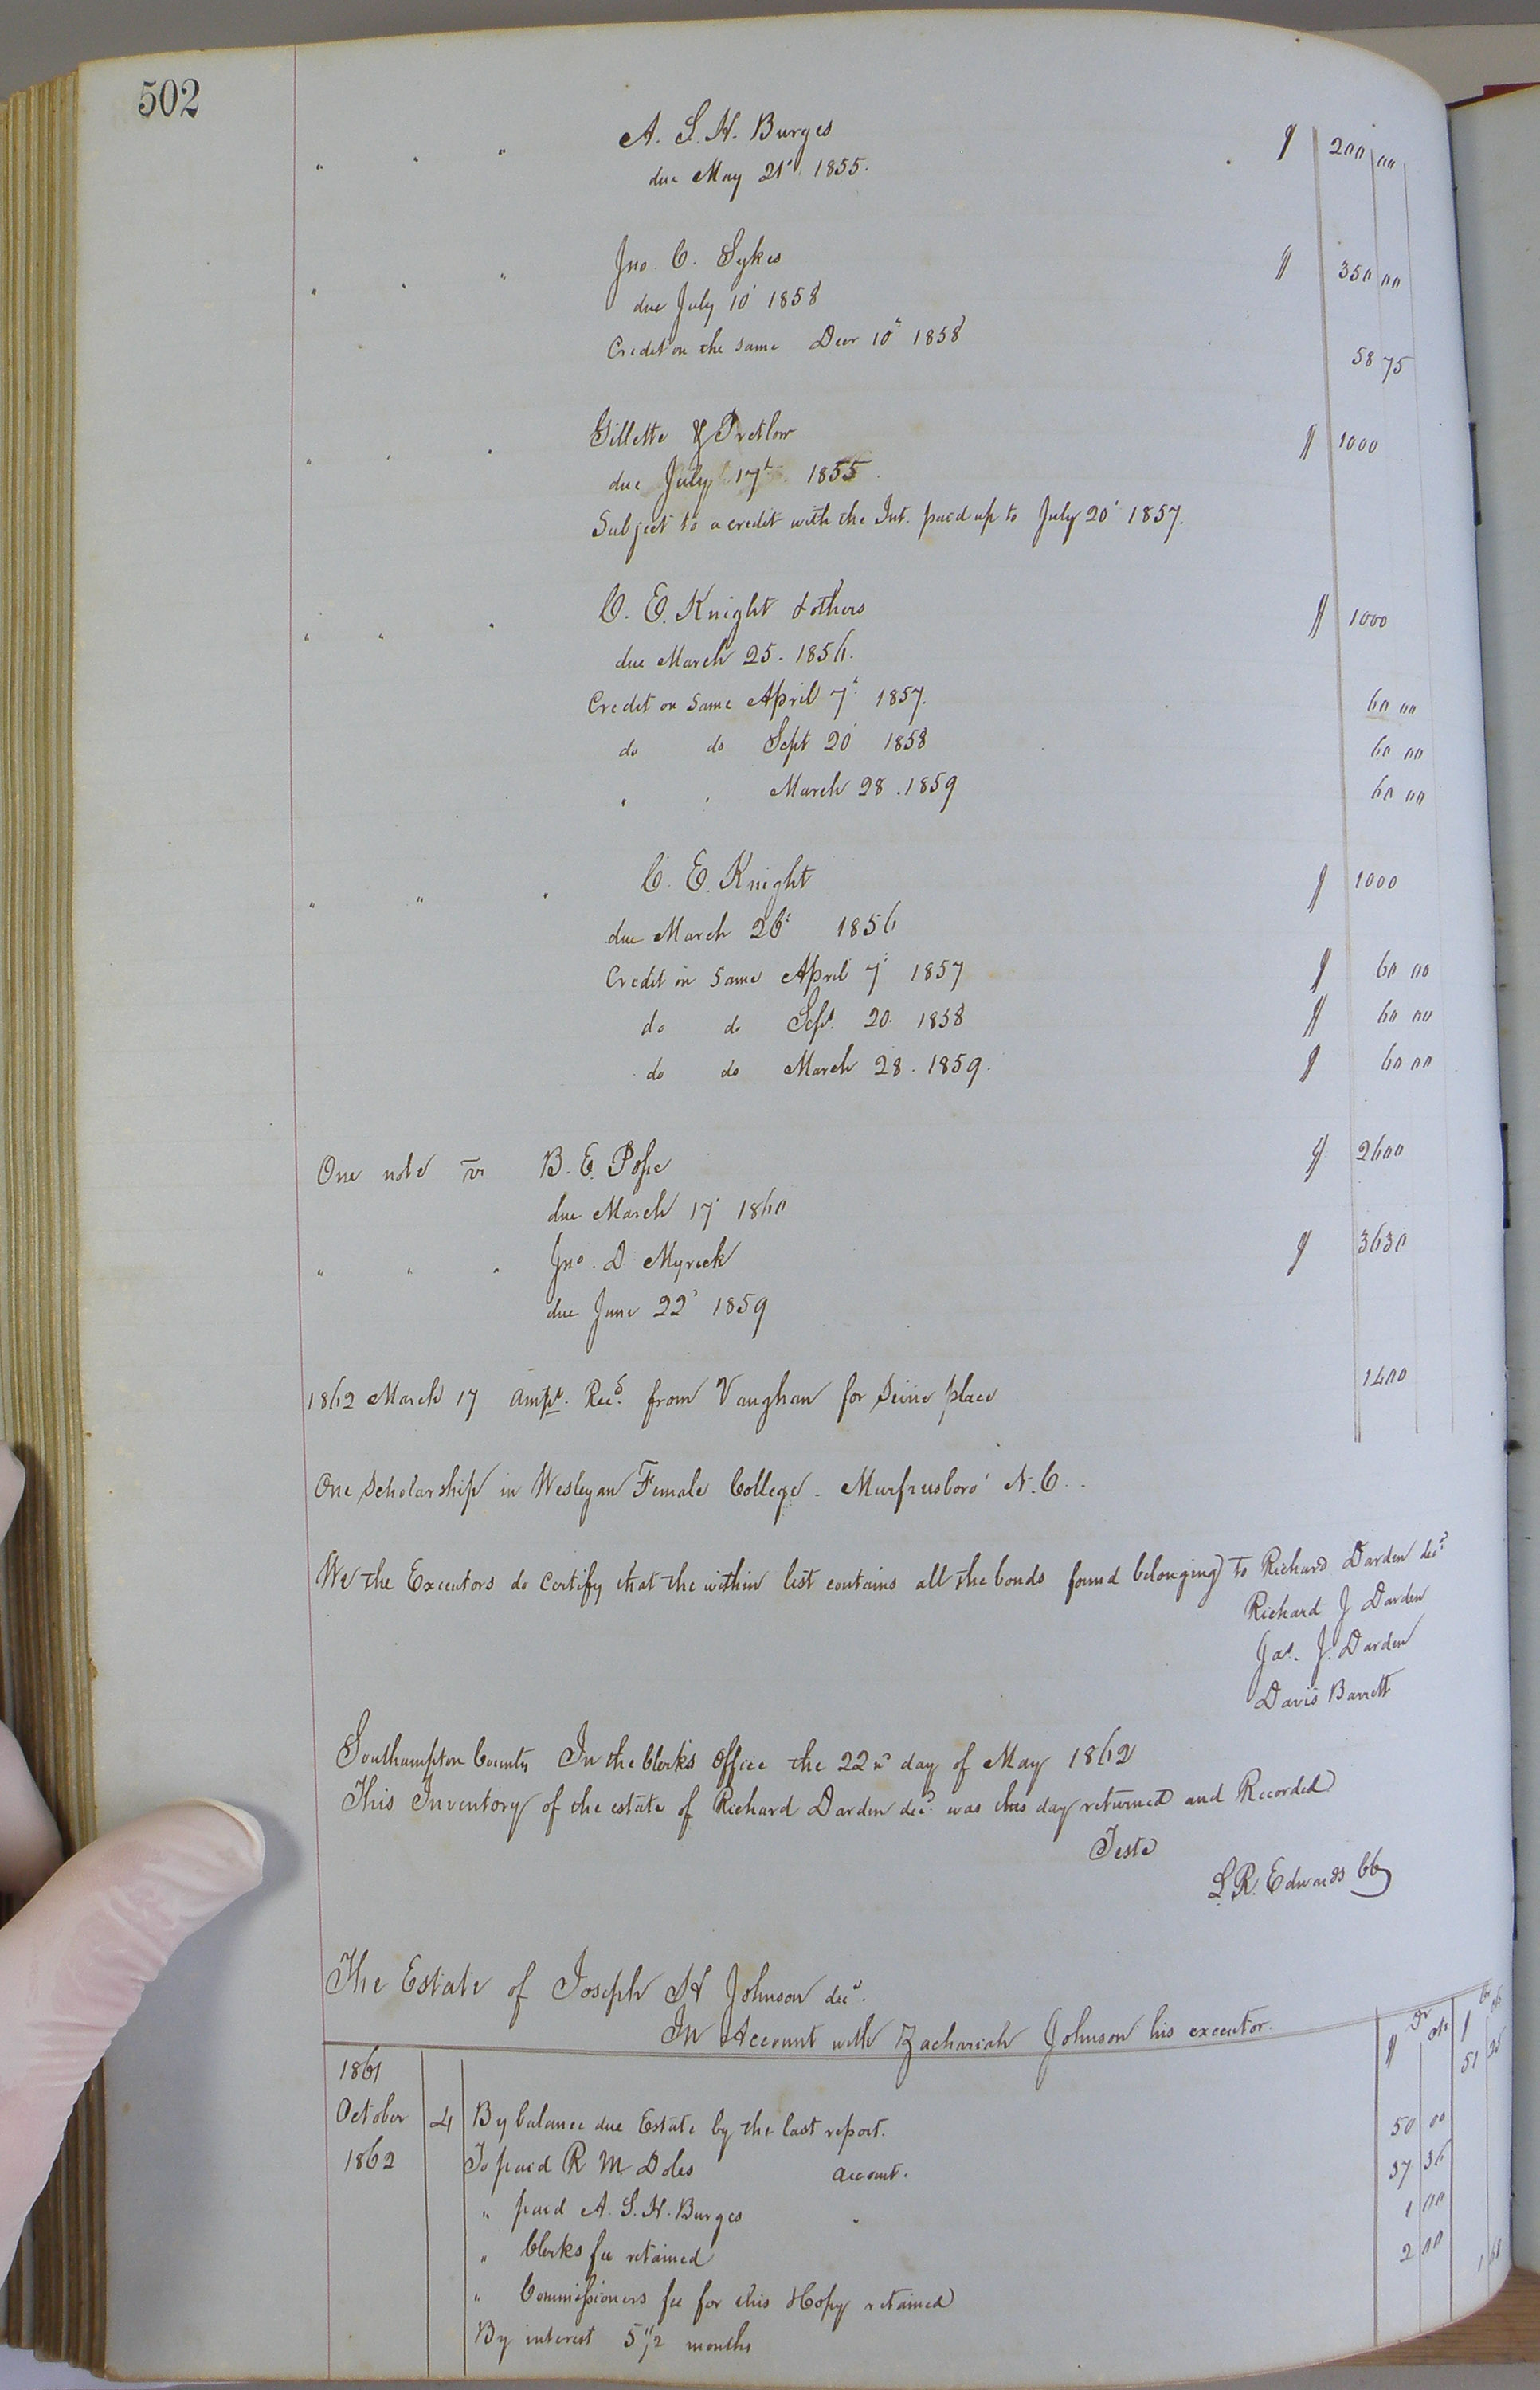 502
" " " A. S. H. Burges $ 200 00
due May 21' 1855.
" " " Jno. C. Sykes $ 350 00
due July 10' 1858
Credit on the same Decr 10' 1858 58 75
" " " Gillette & Pretlow $ 1000
due July 17th 1855.
Subject to a credit with the Int. paid up to July 20' 1857.
" " " C. E. Knight & others $ 1000
due March 25. 1856.
Credit on Same April 7' 1857. 60 00
do do Sept 20' 1858 60 00
" " March 28. 1859 60 00
" " " C. E. Knight $ 1000
due March 26' 1856
Credit on Same April 7' 1857 $ 60 00
do do Sept. 20. 1858 $ 60 00
do do March 28. 1859. $ 60 00
One note vs B. E. Pope $ 2600
due March 17' 1860
" " " Jno. D. Myrick $ 3630
due June 22' 1859
1862 March 17 Amt. Recd. from Vaughan for Seine place 1400
One Scholarship in Wesleyan Female College - Murfreesboro' N.C.
We the Executors do Certify that the within list contains all the bonds found belonging to Richard Darden decd
Richard J Darden
Jas. J. Darden
Davis Barrett
Southampton County In the Clerk's Office the 22nd day of May 1862
This Inventory of the estate of Richard Darden decd. was this day returned and Recorded
Teste
L. R. Edwards CC
The Estate of Joseph H Johnson decd.
In Account with Zachariah Johnson his executor. $ Dr cts $ Cr cts
1861
October 4 By balance due Estate by the last report. 51 25
1862 To paid R M Doles account. 50 00
" paid A. S. H. Burges " 37 36
" Clerks fee retained 1 00
" Commissioners fee for this & Copy retained 2 00
By interest 5 1/2 months 1 68